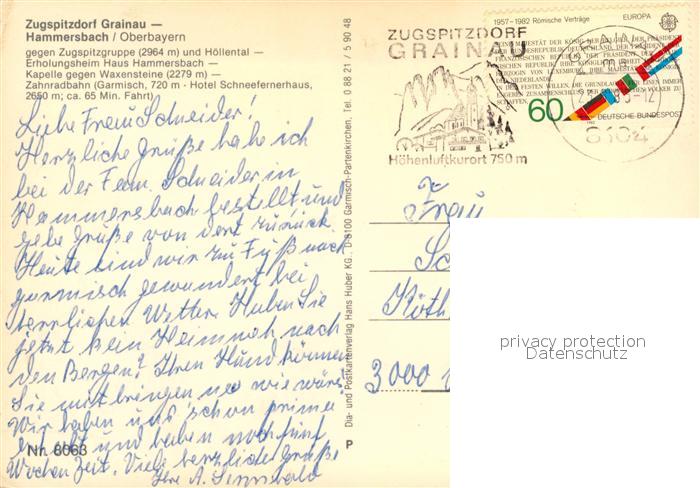 Zugspitzdorf Grainau —
Hammersbach / Oberbayern
gegen Zugspitzgruppe (2964 m) und Höllental —
Erholungsheim Haus Hammersbach —
Kapelle gegen Waxensteine (2279 m) —
Zahnradbahn (Garmisch, 720 m · Hotel Schneefernerhaus,
2650 m; ca. 65 Min. Fahrt)
Liebe Frau Schneider!
Herzliche Grüße habe ich
bei der Fam. Schneider in
Hammersbach bestellt und
gebe Grüße von dort zurück.
Heute sind wir zu Fuß nach
Garmisch gewandert bei
herrlichem Wetter. Haben Sie
jetzt kein Heimweh nach
den Bergen? Ihren Hund können
Sie mitbringen wie wäre
Wir haben uns schon prima
und haben noch fünf
Wochen Zeit. Viele herzliche Grüße
Ihre A.
Nr. 8063
P
Dia- und Postkartenverlag Hans Huber KG., D 8100 Garmisch-Partenkirchen, Tel. 0 88 21 / 5 90 48
ZUGSPITZDORF
GRAINAU
Höhenluftkurort 750 m
1957–1982 Römische Verträge EUROPA
60
DEUTSCHE BUNDESPOST
8104
Frau
Sc
Köth
3000
privacy protection
Datenschutz